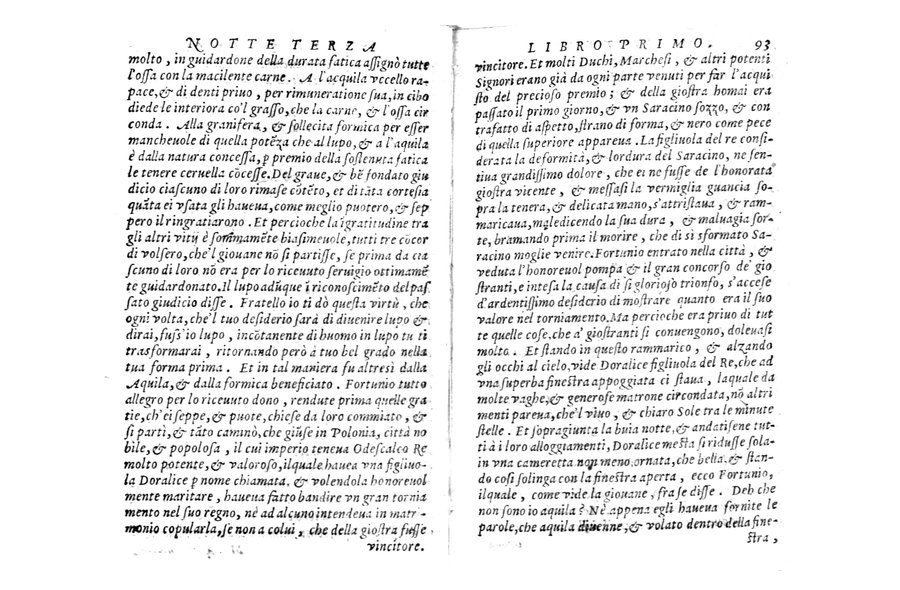 NOTTE TERZA
molto, in guidardone della durata fatica assignò tutte
l'ossa con la macilente carne. A l'acquila vccello ra-
pace, & di denti priuo, per rimuneratione sua, in cibo
diede le interiora co'l grasso, che la carne, & l'ossa cir
conda. Alla granifera, & sollecita formica per esser
mancheuole di quella potẽza che al lupo, & a l'aquila
è dalla natura concessa, p premio della sostenuta fatica
le tenere ceruella cõcesse. Del graue, & bẽ fondato giu
dicio ciascuno di loro rimase cõtẽto, et di tãta cortesia
quãta ei vsata gli haueua, come meglio puotero, & sep
pero il ringratiarono. Et percioche la ĩgratitudine tra
gli altri vitij è sommamẽte biasimeuole, tutti tre cõcor
di volsero, che'l giouane nõ si partisse, se prima da cia
scuno di loro nõ era per lo riceuuto seruigio ottimamẽ
te guidardonato. Il lupo adũque ĩ riconoscimẽto del pas
sato giudicio disse. Fratello io ti dò questa virtù, che
ogni volta, che'l tuo desiderio sarà di diuenire lupo &
dirai, fuss'io lupo, incõtanente di huomo in lupo tu ti
trasformarai, ritornando però à tuo bel grado nella
tua forma prima. Et in tal maniera fu altresì dalla
Aquila, & dalla formica beneficiato. Fortunio tutto
allegro per lo riceuuto dono, rendute prima quelle gra
tie, ch'ei seppe, & puote, chiese da loro commiato, &
si partì, & tãto caminò, che giũse in Polonia, città no
bile, & popolosa, il cui imperio teneua Odescalco Re
molto potente, & valoroso, ilquale haueua vna figliuo-
la Doralice p nome chiamata. & volendola honoreuol
mente maritare, haueua fatto bandire vn gran tornia
mento nel suo regno, nè ad alcuno intendeua in matri-
monio copularla, se non a colui, che della giostra fusse
vincitore.
LIBRO PRIMO. 93
vincitore. Et molti Duchi, Marchesi, & altri potenti
Signori erano già da ogni parte venuti per far l'acqui
sto del precioso premio; & della giostra homai era
passato il primo giorno, & vn Saracino sozzo, & con
trafatto di aspetto, strano di forma, & nero come pece
di quella superiore appareua. La figliuola del re consi-
derata la deformità, & lordura del Saracino, ne sen-
tiua grandissimo dolore, che ei ne fusse de l'honorata
giostra vicente, & messasi la vermiglia guancia so-
pra la tenera, & delicata mano, s'attristaua, & ram-
maricaua, maledicendo la sua dura, & maluagia sor-
te, bramando prima il morire, che di sì sformato Sa-
racino moglie venire. Fortunio entrato nella città, &
veduta l'honoreuol pompa & il gran concorso de' gio
stranti, e intesa la causa di sì glorioso trionfo, s'accese
d'ardentissimo desiderio di mostrare quanto era il suo
valore nel torniamento. Ma percioche era priuo di tut
te quelle cose, che a' giostranti si conuengono, doleuasi
molto. Et stando in questo rammarico, & alzando
gli occhi al cielo, vide Doralice figliuola del Re, che ad
vna superba finestra appoggiata ci staua, laquale da
molte vaghe, & generose matrone circondata, nõ altri
menti pareua, che'l viuo, & chiaro Sole tra le minute
stelle. Et sopragiunta la buia notte, & andatisene tut-
ti à i loro alloggiamenti, Doralice mesta si ridusse sola-
in vna cameretta non meno ornata, che bella, & stan-
do così solinga con la finestra aperta, ecco Fortunio,
ilquale, come vide la giouane, fra se disse. Deh che
non sono io aquila? Nè appena egli haueua fornite le
parole, che aquila diuenne, & volato dentro della fine-
stra,